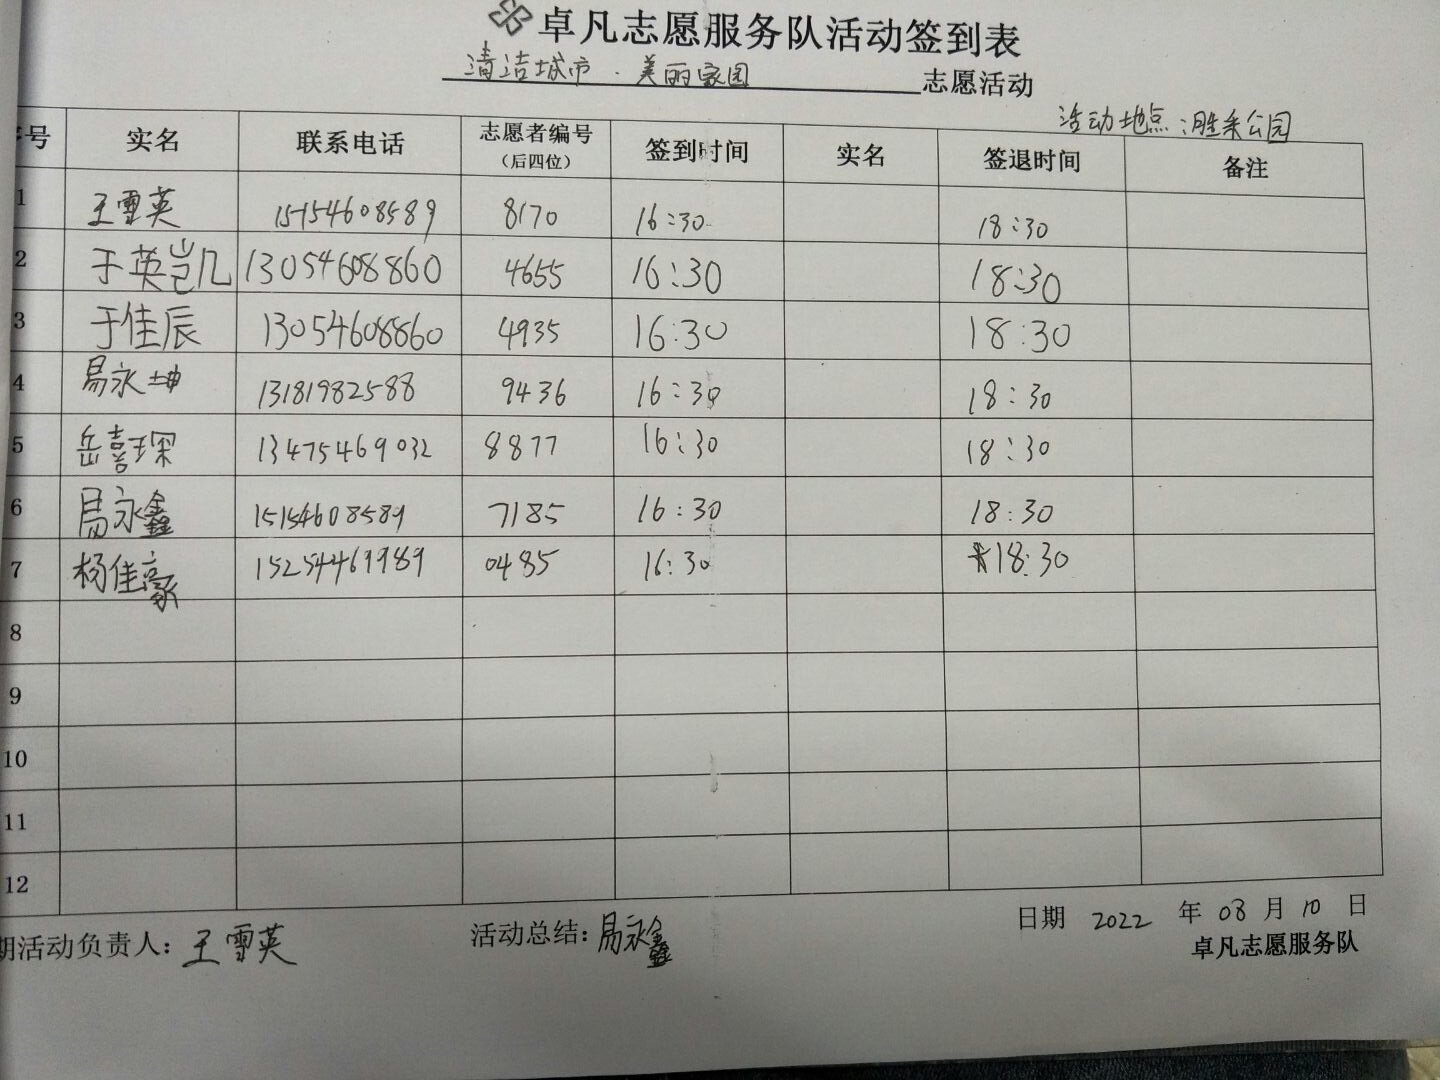 卓凡志愿服务队活动签到表
清洁城市·美丽家园 志愿活动
活动地点:胜采公园
序号 实名 联系电话 志愿者编号(后四位) 签到时间 实名 签退时间 备注
1 王雪英 15154608589 8170 16:30 18:30
2 于英岂几 13054608860 4655 16:30 18:30
3 于佳辰 13054608860 4935 16:30 18:30
4 易永坤 13181982588 9436 16:30 18:30
5 岳喜琛 13475469032 8877 16:30 18:30
6 易永鑫 15154608589 7185 16:30 18:30
7 杨佳豪 15254469989 0485 16:30 18:30
8
9
10
11
12
期活动负责人:王雪英 活动总结:易永鑫 日期 2022 年 08 月 10 日
卓凡志愿服务队